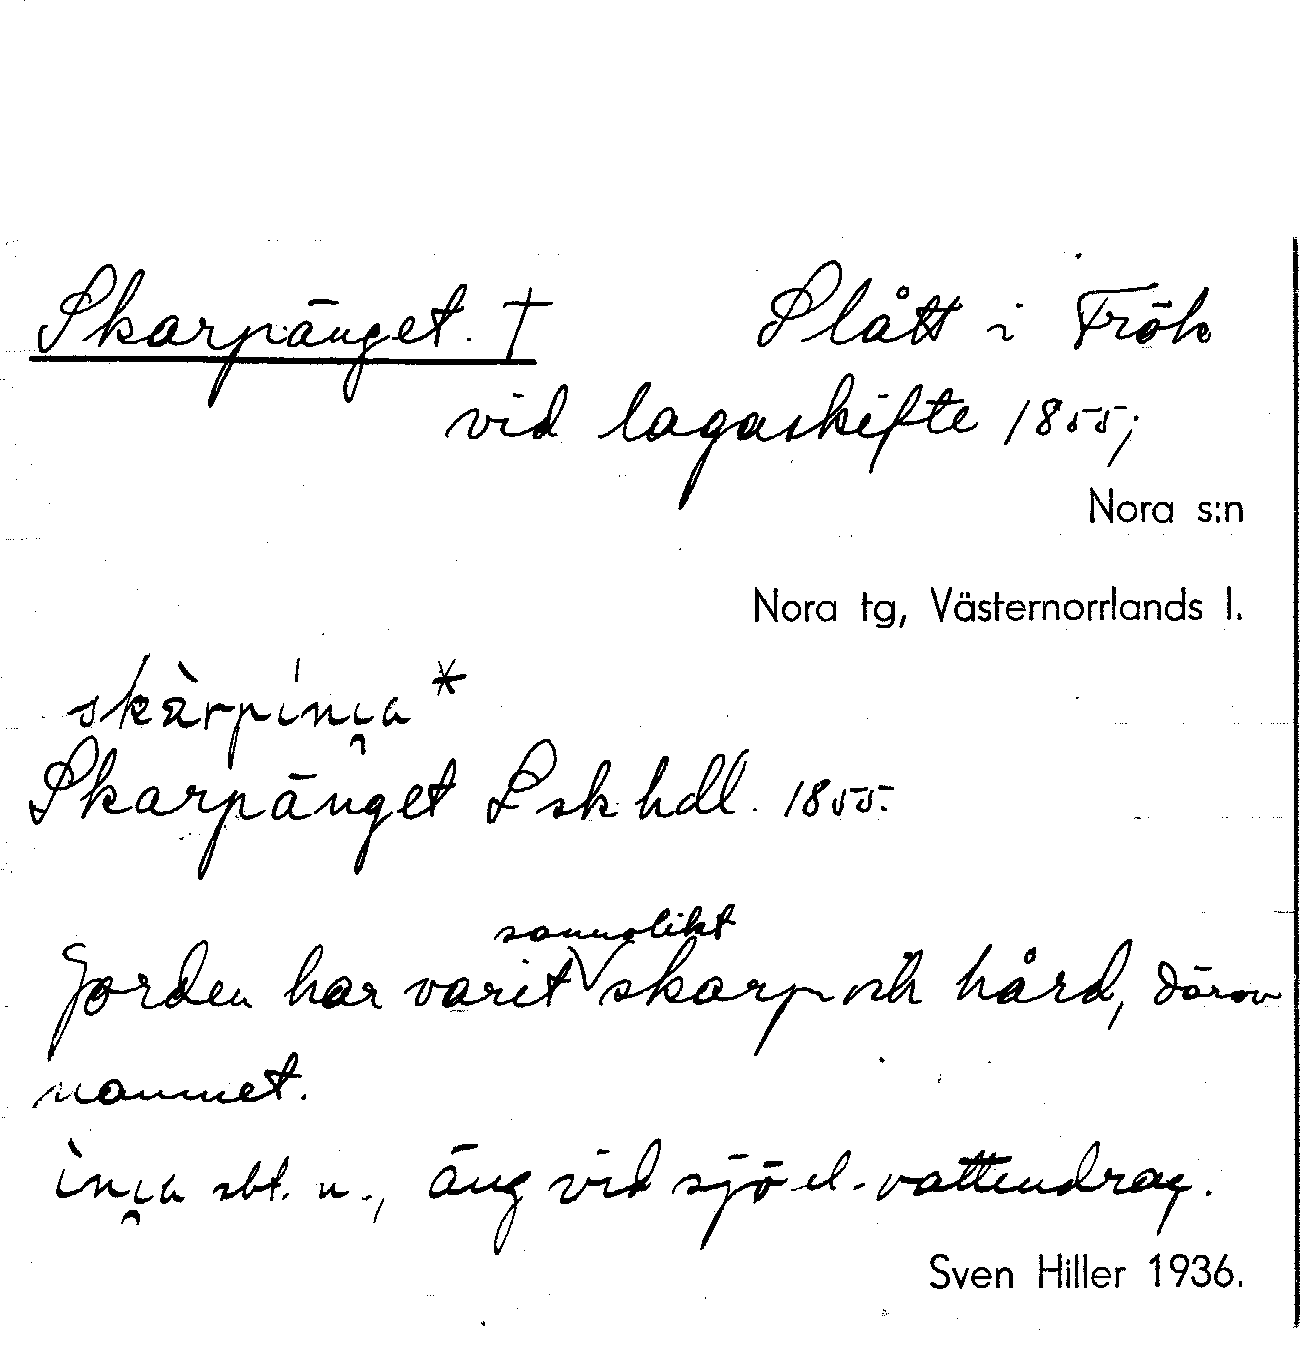 Skarpänget. † Slått i Frök
vid lagaskifte 1855;
Nora s:n
Nora tg, Västernorrlands l.
skàrpíni̯a *
Skarpänget Lskhdl. 1855.
sannolikt
Jorden har varit V skarp och hård, därav
namnet.
ìni̯a sbt. n., äng vid sjö el. vattendrag.
Sven Hiller 1936.